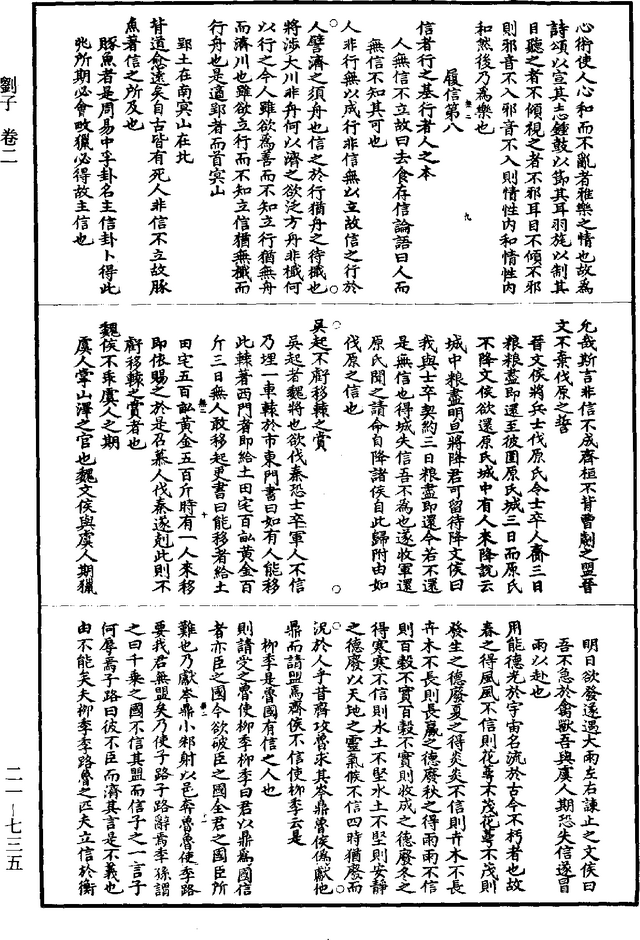 心術使人心和而不亂者雅樂之情也故為
詩頌以宣其志鍾鼓以節其耳羽旄以制其
目聽之者不傾視之者不邪耳目不傾不邪
則邪音不入邪音不入則情性內和情性內
和然後乃為樂也
履信第八
信者行之基行者人之本
人無信不立故曰去食存信論語曰人而
無信不知其可也
人非行無以成行非信無以立故信之行於
人譬濟之須舟也信之於行猶舟之待檝也
將涉大川非舟何以濟之欲泛方舟非檝何
以行之今人雖欲為善而不知立行猶無舟
而濟川也雖欲立行而不知立信猶無檝而
行舟也是適郢者而首冥山
郢土在南冥山在北
背道愈遠矣自古皆有死人非信不立故豚
魚著信之所及也
豚魚者是周易中孚卦名主信卦卜得此
兆所期必會畋獵必得故主信也
允哉斯言非信不成齊桓不背曹劌之盟晉
文不棄伐原之誓
晉文侯將兵士伐原氏令士卒人齎三日
粮粮盡即還至彼圍原氏城三日而原氏
不降文侯欲還原氏城中有人來降說云
城中粮盡明旦將降君可留待降文侯曰
我與士卒契約三日粮盡即還今若不還
是無信也得城失信吾不為也遂收軍還
原氏聞之請命自降諸侯自此歸附由如
伐原之信也
吳起不虧移轅之賞
吳起者魏將也欲伐秦恐士卒軍人不信
乃埋一車轅於市東門書曰如有人能移
此轅著西門者即給土田宅百畝黃金百
斤三日無人敢移起更書曰能移者給土
田宅五百畝黃金五百斤時有一人來移
即依賜之於是召募人伐秦遂剋此則不
虧移轅之賞者也
魏侯不乖虞人之期
虞人掌山澤之官也魏文侯與虞人期獵
明日欲發遂遇大雨左右諫止之文侯曰
吾不急於禽獸吾與虞人期恐失信遂冒
雨以赴也
用能德光於宇宙名流於古今不朽者也故
春之得風風不信則花萼不茂花萼不茂則
發生之德廢夏之得炎炎不信則卉木不長
卉木不長則長嬴之德廢秋之得雨雨不信
則百穀不實百穀不實則收成之德廢冬之
得寒寒不信則水土不堅水土不堅則安靜
之德廢以天地之靈氣候不信四時猶廢而
況於人乎昔齊攻魯求其岑鼎魯侯偽獻他
鼎而請盟焉齊侯不信使柳季云是
柳季是魯國有信之人也
則請受之魯使柳季柳季曰君以鼎為國信
者亦臣之國今欲破臣之國全君之國臣所
難也乃獻岑鼎小邾射以邑奔魯使季路
要我君無盟矣乃使子路子路辭焉季孫謂
之曰千乘之國不信其盟而信子之一言子
何辱焉子路曰彼不臣而濟其言是不義也
由不能矣夫柳季季路魯之匹夫立信於衡
劉子 卷二
二一—七三五